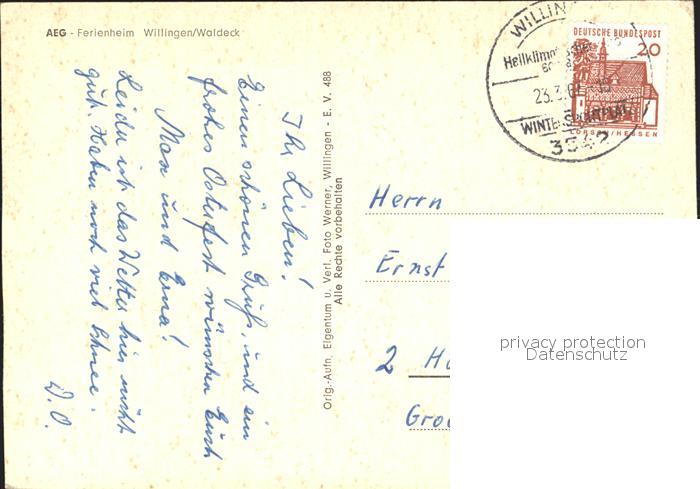 AEG - Ferienheim Willingen/Waldeck
Ihr Lieben!
Einen schönen Gruß, und ein
frohes Osterfest wünschen Euch
Max und Erna!
Leider ist das Wetter hier nicht
gut. Haben noch viel Schnee.
D. O.
Orig.-Aufn. Eigentum u. Verl. Foto Werner, Willingen - E. V. 488
Alle Rechte vorbehalten
WILLIN
Heilklimatischer
23.3.
WINTERSPORTPLATZ
3542
DEUTSCHE BUNDESPOST
20
LORSCH/HESSEN
Herrn
Ernst
2 Ha
Groß
privacy protection
Datenschutz